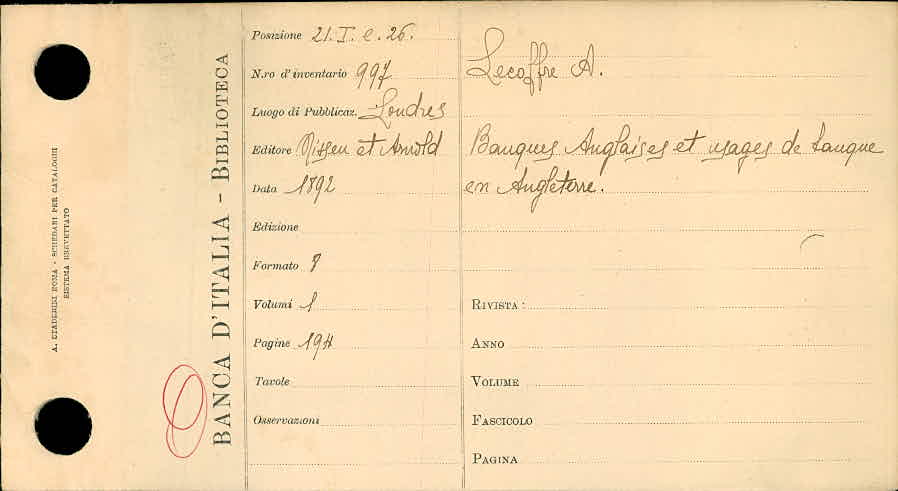 A. STADERINI ROMA - SCHEDARI PER CATALOGHI
SISTEMA BREVETTATO
BANCA D'ITALIA - BIBLIOTECA
Posizione 21. I. e. 26.
N.ro d'inventario 997
Luogo di Pubblicaz. Londres
Editore Nissen et Arnold
Data 1892
Edizione
Formato 8
Volumi 1
Pagine 194
Tavole
Osservazioni
Lecoffre A.
Banques Anglaises et usages de banque
en Angleterre.
RIVISTA:
ANNO
VOLUME
FASCICOLO
PAGINA